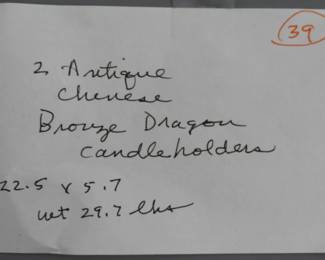 39
2 Antique
Chinese
Bronze Dragon
candleholders
22.5 x 5.7
wt 29.7 lbs